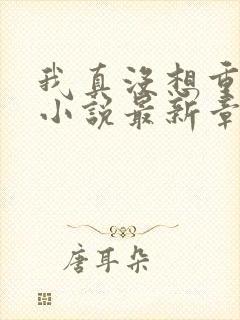 我真没想重
小说最新章
唐耳朵